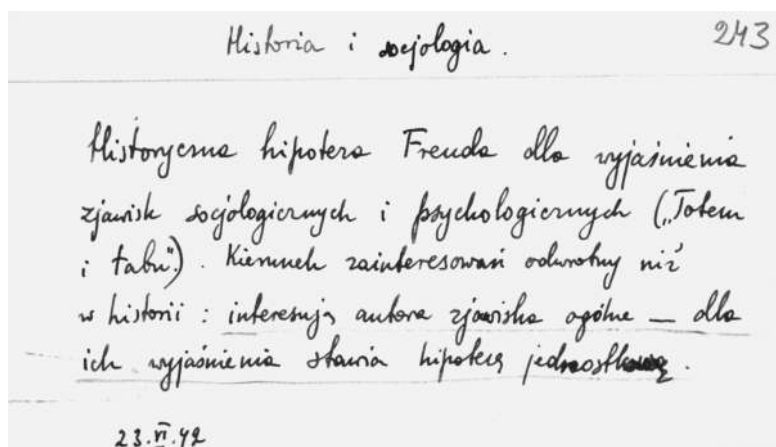 Historia i socjologia.
243
Historyczna hipoteza Freuda dla wyjaśnienia
zjawisk socjologicznych i psychologicznych („Totem
i tabu"). Kierunek zainteresowań odwrotny niż
w historii : interesują autora zjawiska ogólne — dla
ich wyjaśnienia stawia hipotezę jednostkową.
23.VI.42